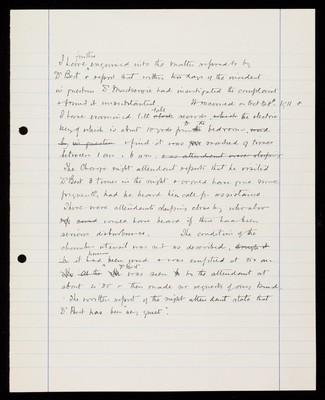 further
I have enquired into the matter referred to by
Dr Bost & report that within two days of the incident
in question Dr had investigated the complaint
& found it unsubstantiated. It occurred on Oct 1911 &
I have examined the tell records the electric
key of which is about 10 yards from the bedroom,
& found it was marked of times
between 1 am & 6 am.
The Charge night attendant reports that he visited
Dr Bost 3 times in the night & would have gone more
frequently had he heard him call for assistance.
Three were attendants sleeping close by who also
would have heard if there had been
serious disturbance. The condition of the
chamber utensil was not as described,
it had been used & was emptied at six am.
Dr Bost was seen by the attendant at
about 2.30 & then made no requests of any kind.
The written report of the night attendant state that
Dr Bost has been "very quiet".